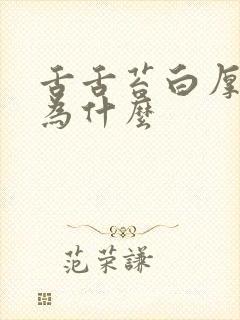 舌舌苔白厚
為什麼
范荣謙